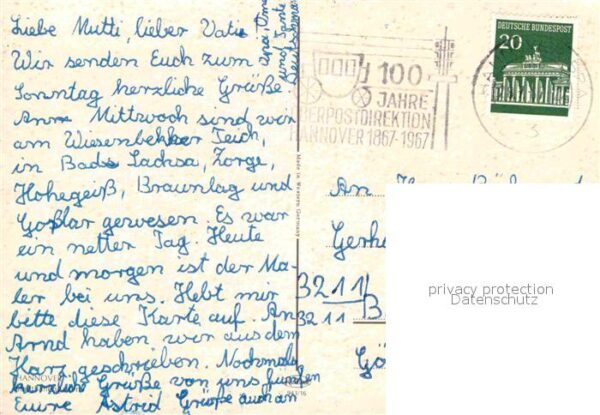 Liebe Mutti, lieber Vati
Wir senden Euch zum
Sonntag herzliche Grüße.
Am Mittwoch sind wir
am Wiesenbekker Teich,
in Bad Sachsa, Zorge,
Hohegeiß, Braunlag und
Goßlar gewesen. Es war
ein netter Tag. Heute
und morgen ist der Ma-
ler bei uns. Hebt mir
bitte diese Karte auf. An
Arnd haben wir aus dem
Harz geschrieben. Nochmals
herzliche Grüße von uns fünfen
Eure Astrid Grüße auch an
HANNOVER
Made in Western Germany
100
JAHRE
OBERPOSTDIREKTION
HANNOVER 1867-1967
DEUTSCHE BUNDESPOST
20
An
Gerh
3211
3211 B
privacy protection
Datenschutz